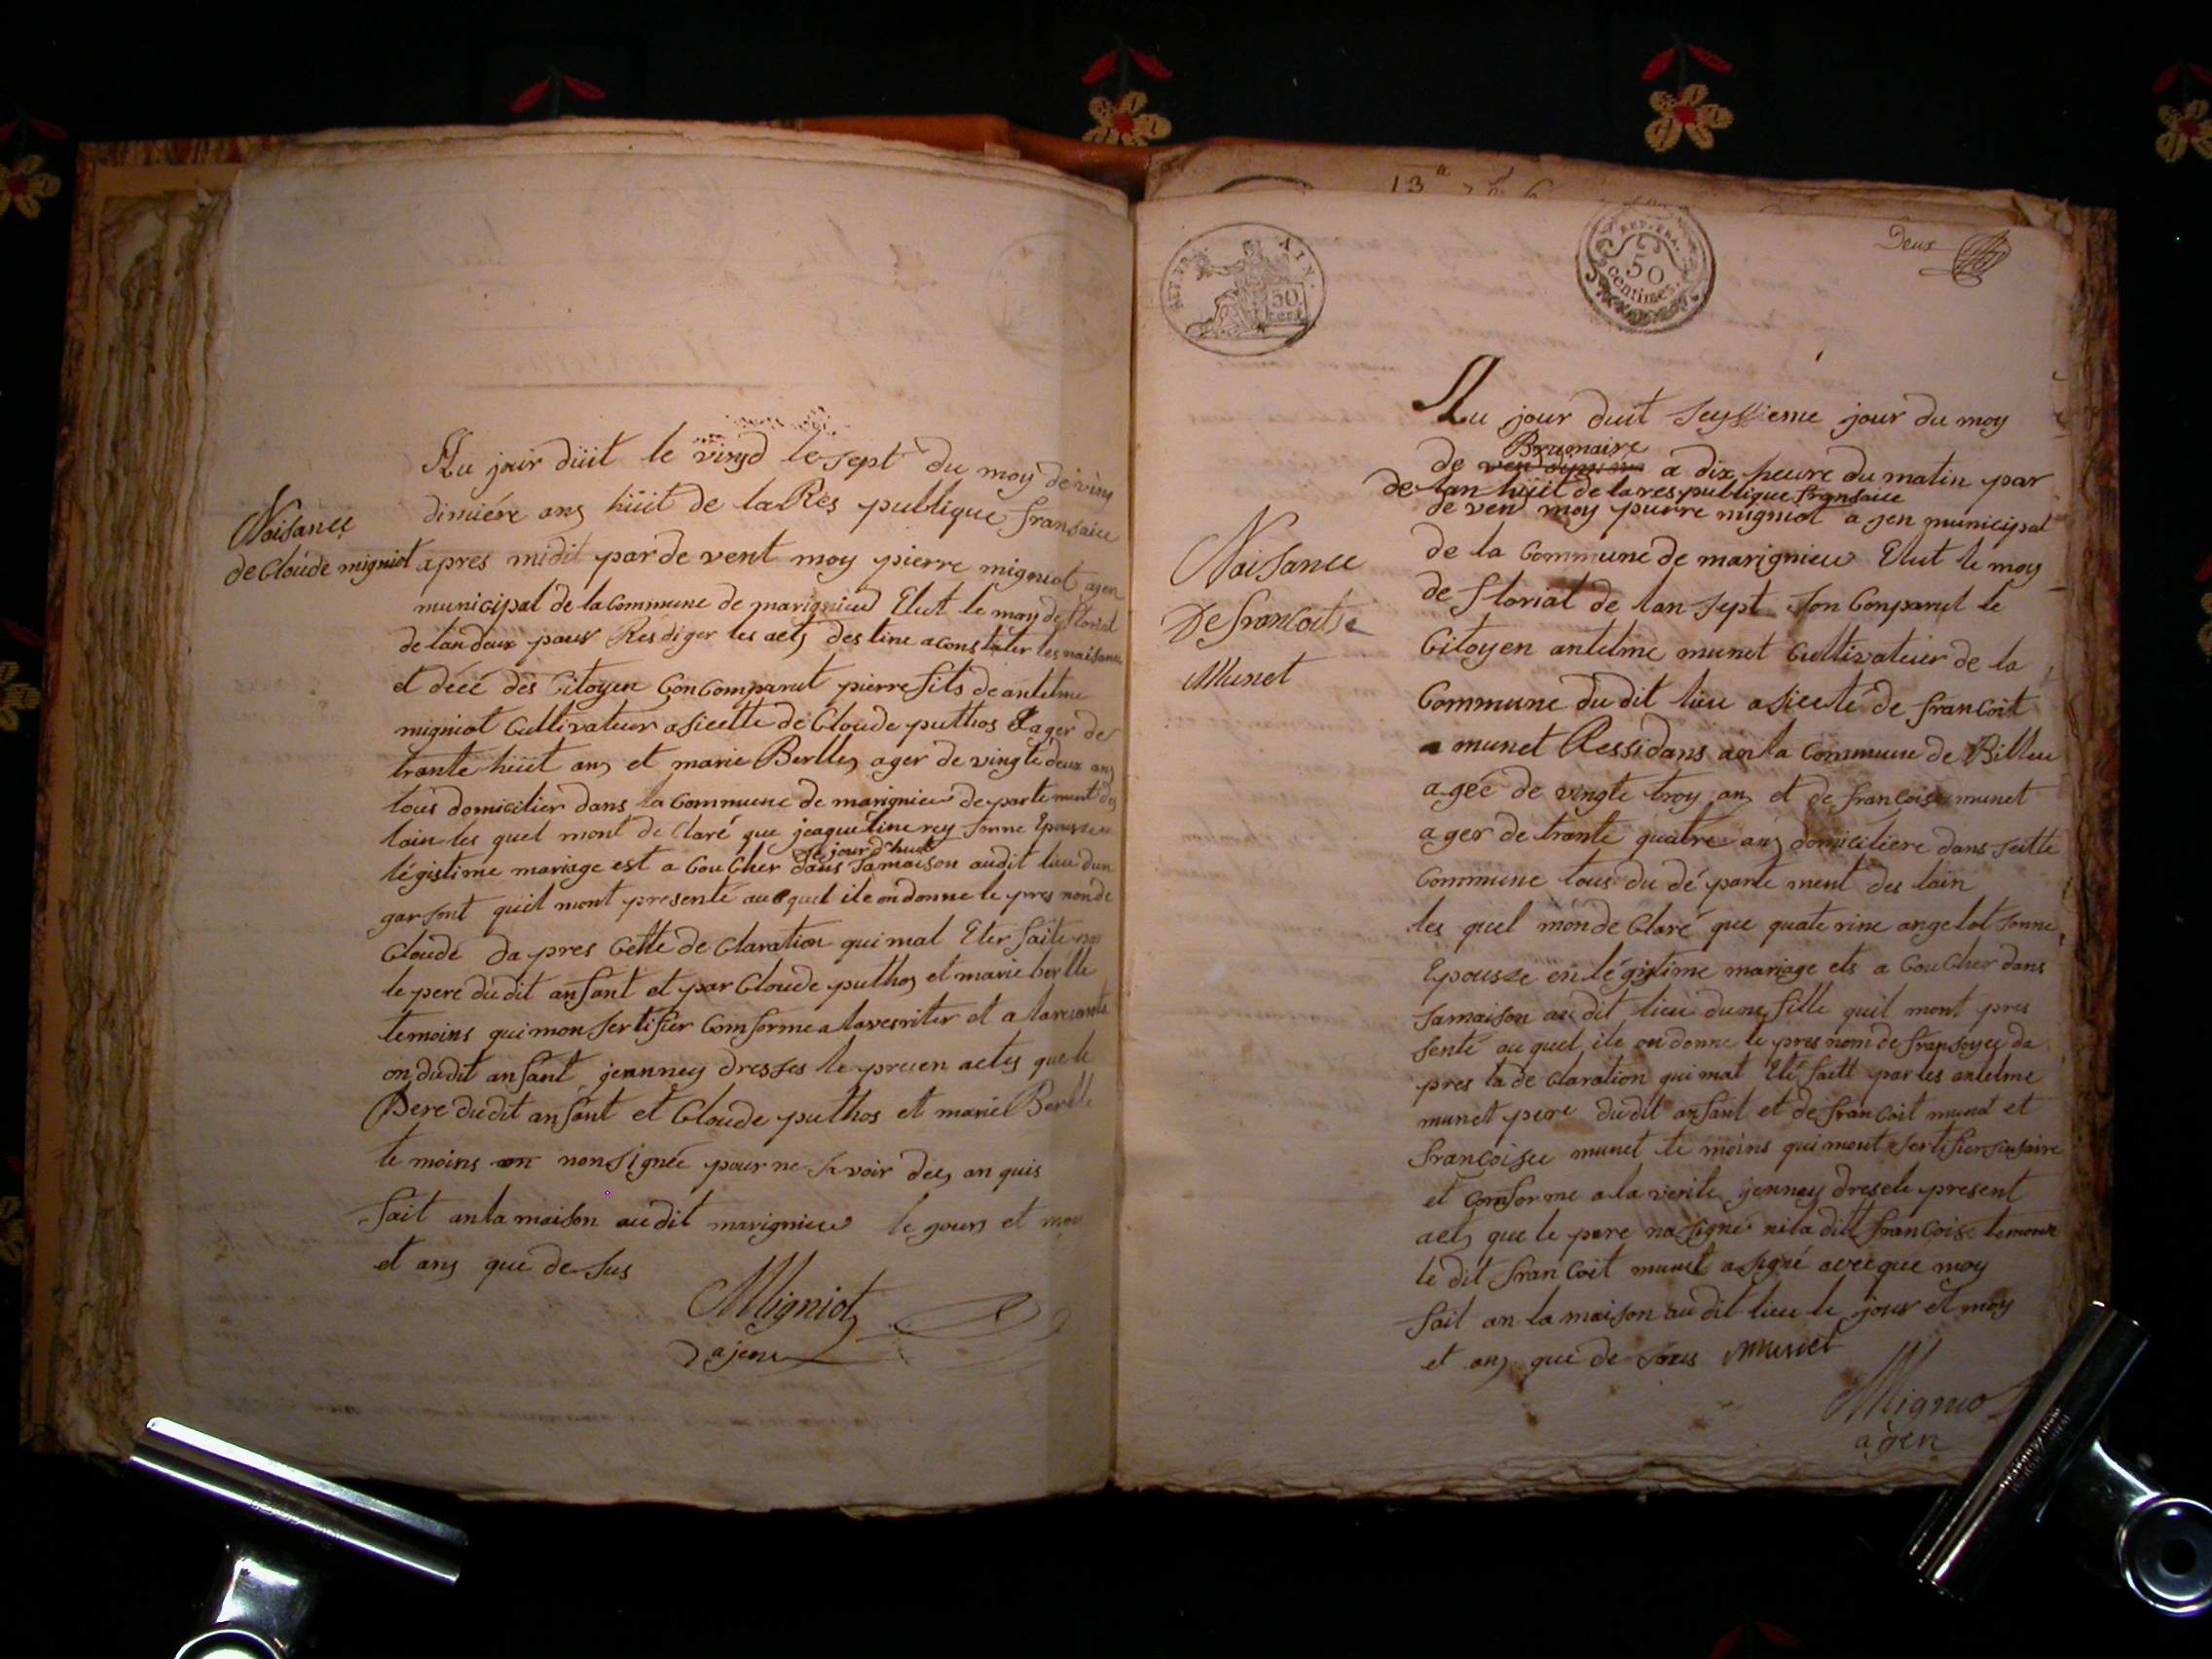 Naisance
de Cloude migniot
Au jour düit le vingd le sept du moy de vin
dimiére ans hüit de la Rés publique fransaice
apres midit par de vent moy pierre migniot ajen
municipal de la Commune de marignieu Elut le moy de florial
de lan deux pour Resdiger les acts destine a constater les naisance
et décé des Citoyen Con Comparut pierre fils de antelme
migniot Cultivateur asicette de Cloude puthos Eager de
trante hüit ans et marie Berlle ager de vingte deux ans
tous domicilier dans la Commune de marignieu departement des
lain les quel mont de Claré que jeaqueline rey sonne Epousse en
ce jour d'hui
légistime mariage est a Coucher dans samaison audit lieu dun
garsont quil mont presenté auquel ile on donne le pres nom de
Cloude da pres Cette de Claration qui mat Eter faite
le pere dudit anfant et par Cloude puthos et marie berlle
temoins qui mon sertifier Comforme a lavesriter et a la
on dudit anfant jeanney dresses le presen actes que le
Pere dudit anfant et Cloude puthos et marie Berlle
te moins on non signée pour ne savoir dee an quis
fait an la maison au dit marignieu le jours et moy
et ans que de sus
Migniot
ajent
REP. FRA.
50
cent.
REP. FRA.
50
centimes.
Deux
13
Naisance
De francoitse
Munet
Au jour duit seyssieme jour du moy
Brumaire
de a dix heure du matin par
de lan hüit de la res publique fransaice
de vent moy pierre migniot a jen municipal
de la Commune de marignieu Elut le moy
de florial de lan sept son Conparut le
Citoyen antelme munet Cultivateur de la
Commune du dit lieu asicete de francoit
munet Ressidans an la Commune de Billieu
agée de vingte troy ans et de francoise munet
ager de trante quatre ans domiciliere dans seitte
Commune tous du dé parte ment des lain
les quel mon de Claré que quaterine angelot sonne
Epousse en légistime mariage ets a Coucher dans
samaison au dit lieu dune fille quil mont pres
senté auquel ile on donne le pres nom de fransoyse da
pres la de Claration qui mat Eté faitt par les antelme
munet pere dudit anfant et de francoit munet et
françoisee munet te moins qui mont sertifier
et comforme a la verite jenney dresele present
acts que le pere na signé ni la ditt francoise temoins
le dit francoit munet a signé avecque moy
fait an la maison au dit lieu le jour et moy
et ans que de sus munet
Mignio
ajen